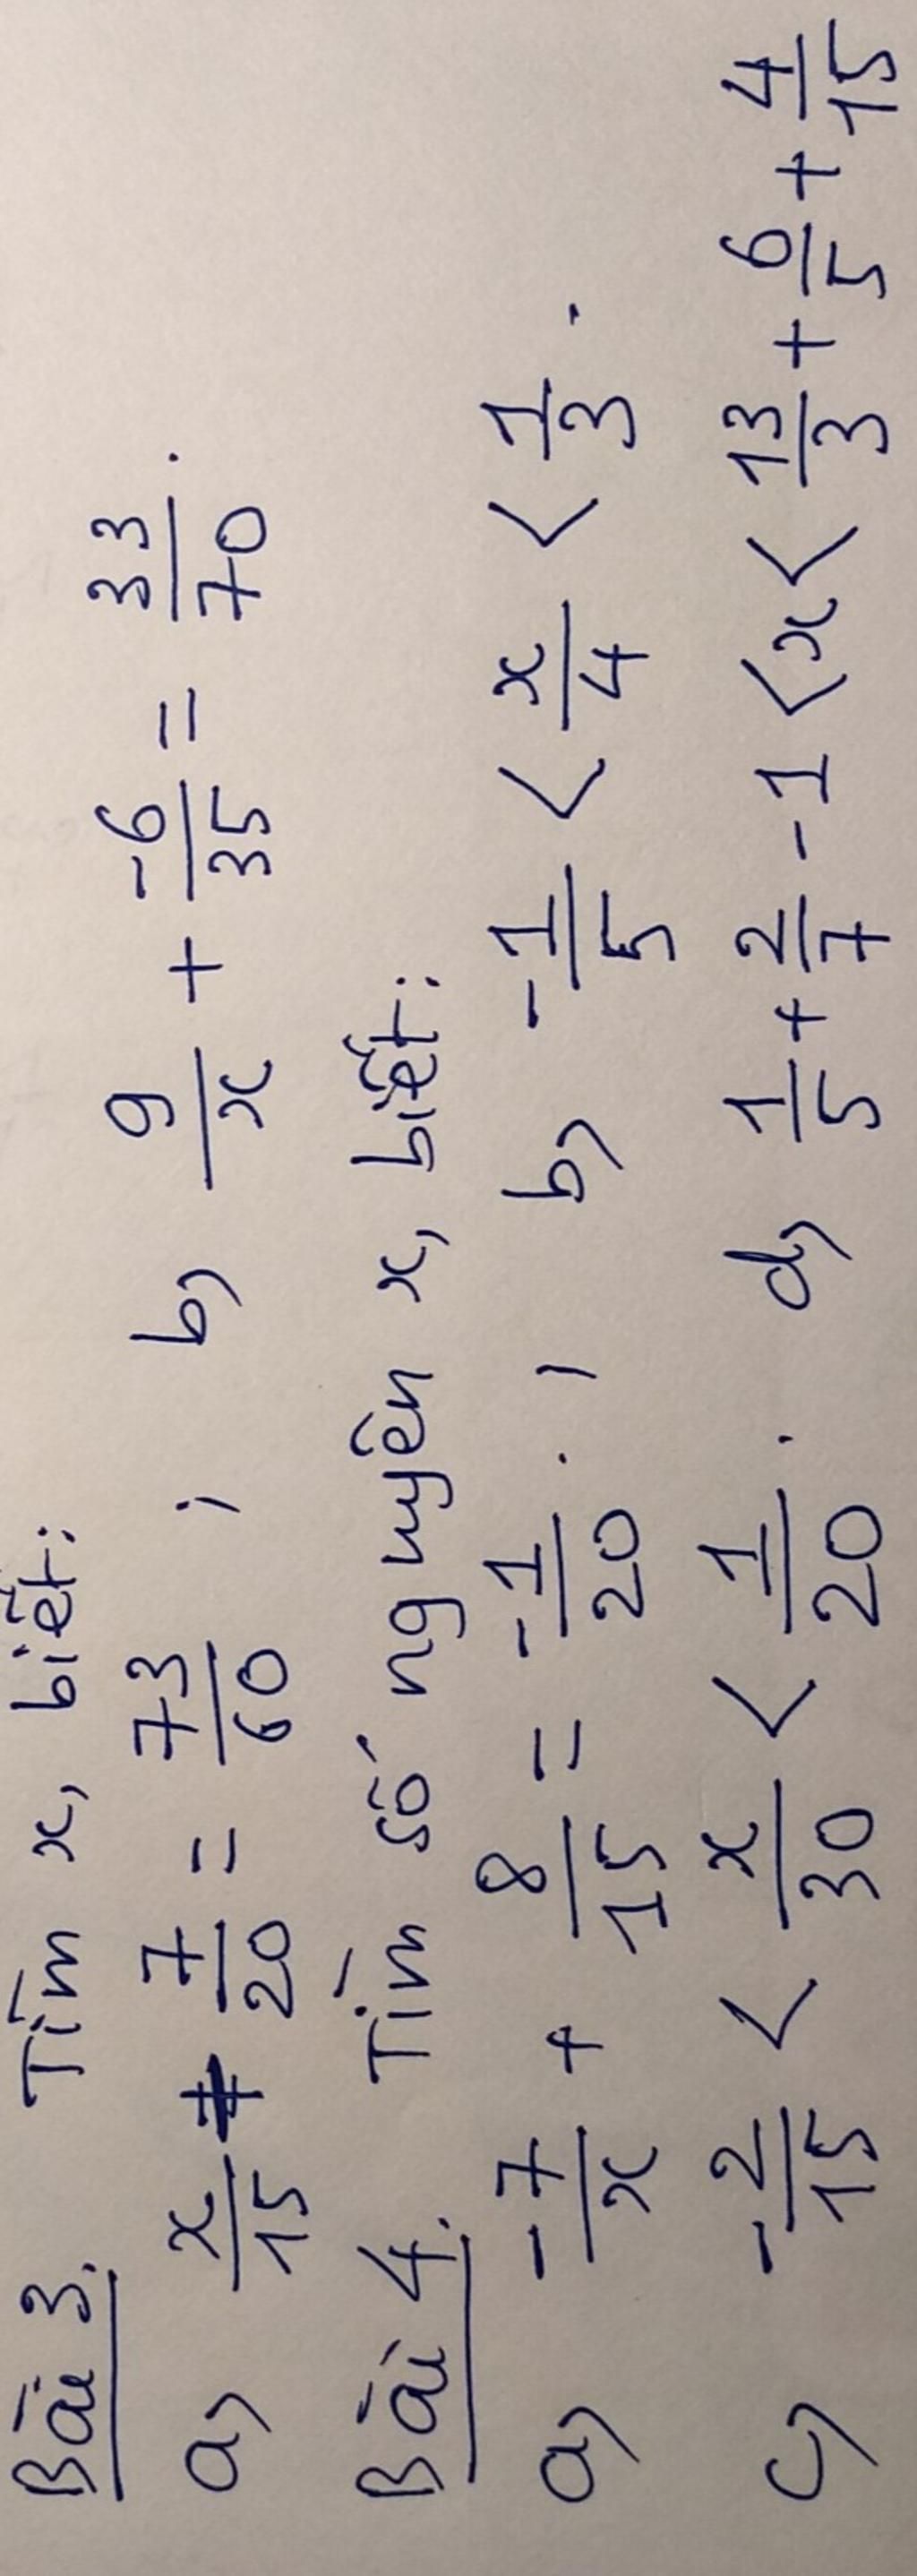 Bài 3. Tìm x, biết:
a) x/15 + 7/20 = 73/60 ; b) 9/x + -6/35 = 33/70.
Bài 4. Tìm số nguyên x, biết:
a) -7/x + 8/15 = -1/20. ; b) -1/5 < x/4 < 1/3.
c) -2/15 < x/30 < 1/20. d) 1/5 + 2/7 - 1 < x < 13/3 + 6/5 + 4/15